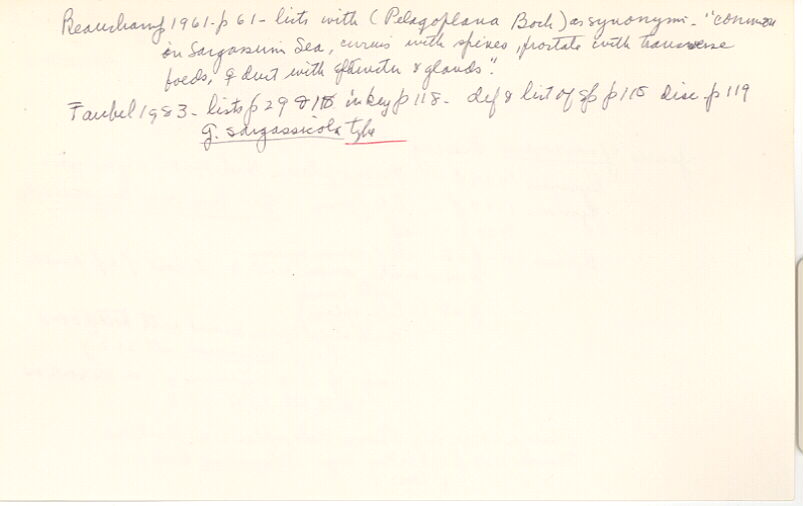 Beauchamp 1961-p 61- lists with (Pelagoplana Bock) as synonym- "common
in Sargassum Sea, cirrus with spines, prostate with transverse
foeds, ♀ duct with & glands".
Faubel 1983- lists p 29 & 115 in key p 118- def & list of sp p 115 disc. p 119
G. sargassicola type